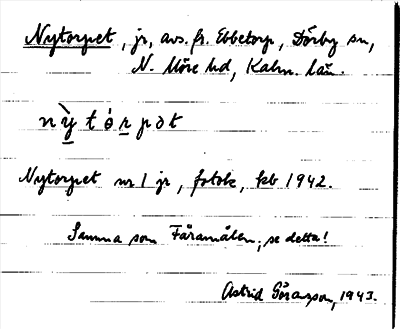 Nytorpet, jr, avs. fr. Ebbetorp, Dörby sn,
N. Möre hd, Kalm. län.
nỳtórpət
Nytorpet nr 1 jr, fotok, kb 1942.
Samma som Fåramålen, se detta!
Astrid Göransson, 1943.